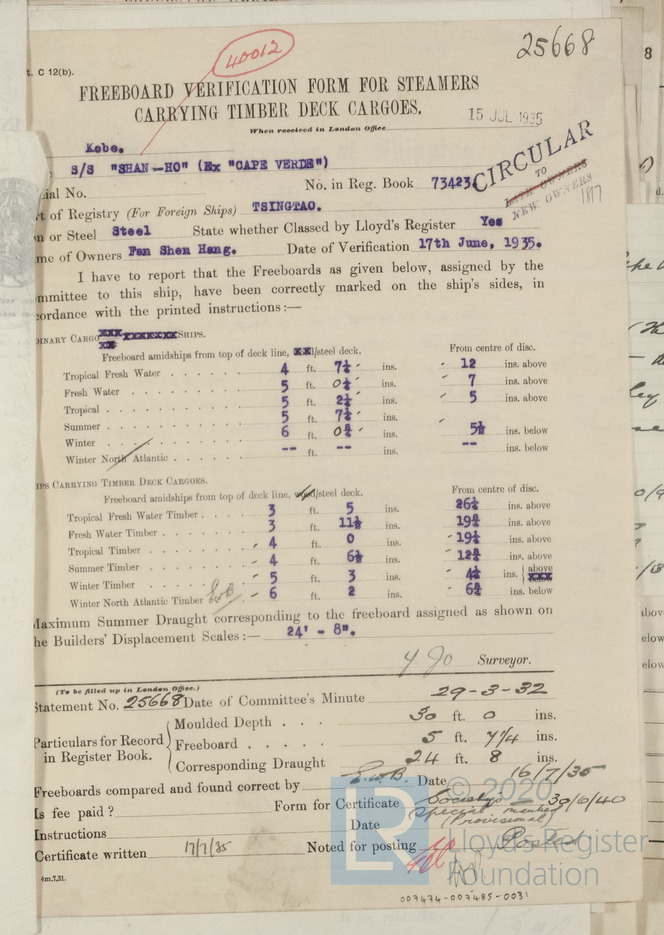 40012
25668
t. C 12(b).
FREEBOARD VERIFICATION FORM FOR STEAMERS
CARRYING TIMBER DECK CARGOES.
15 JUL 1935
When received in London Office
CIRCULAR
TO
NEW OWNERS
Kobe.
S/S "SHAN-HO" (Ex "CAPE VERDE")
cial No. No. in Reg. Book 73423
rt of Registry (For Foreign Ships) TSINGTAO.
n or Steel Steel State whether Classed by Lloyd's Register Yes
me of Owners Fan Shen Hang. Date of Verification 17th June, 1935.
I have to report that the Freeboards as given below, assigned by the
mmittee to this ship, have been correctly marked on the ship's sides, in
cordance with the printed instructions:—
DINARY CARGO SHIPS.
Freeboard amidships from top of deck line, /steel deck. From centre of disc.
Tropical Fresh Water 4 ft. 7¼ ins. 12 ins. above
Fresh Water 5 ft. 0¼ ins. 7 ins. above
Tropical 5 ft. 2¼ ins. 5 ins. above
Summer 5 ft. 7¼ ins.
Winter 6 ft. ins. 5½ ins. below
Winter North Atlantic -- ft. -- ins. -- ins. below
IPS CARRYING TIMBER DECK CARGOES.
Freeboard amidships from top of deck line, wood/steel deck. From centre of disc.
Tropical Fresh Water Timber 3 ft. 5 ins. ins. above
Fresh Water Timber 3 ft. 11½ ins. ins. above
Tropical Timber 4 ft. 0 ins. 19¼ ins. above
Summer Timber 4 ft. 6½ ins. ins. above
Winter Timber 5 ft. 3 ins. 4¼ ins. above
Winter North Atlantic Timber 6 ft. 2 ins. ins. below
Maximum Summer Draught corresponding to the freeboard assigned as shown on
he Builders' Displacement Scales:— 24' - 8".
Surveyor.
(To be filled up in London Office.)
Statement No. 25668 Date of Committee's Minute 29-3-32
Particulars for Record in Register Book.
Moulded Depth 30 ft. 0 ins.
Freeboard 5 ft. 7¼ ins.
Corresponding Draught 24 ft. 8 ins.
Freeboards compared and found correct by E.W.B. Date 16/7/35
Is fee paid? Form for Certificate Society's — 30/6/40
(Provisional)
Instructions Date
Certificate written 17/7/35 Noted for posting Posted
4m,7,31.
© 2020
LR
Lloyd's Register
Foundation
007474-007485-0031